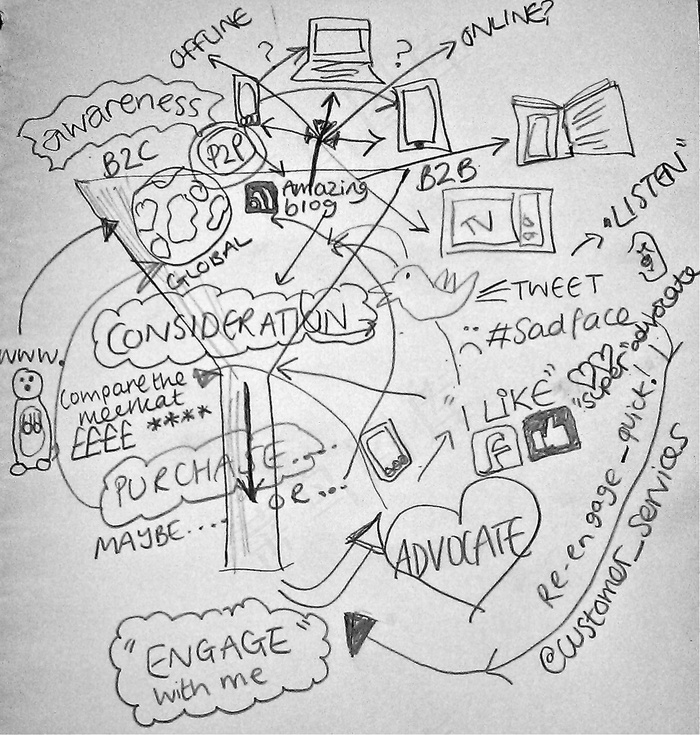 OFFLINE
?
?
ONLINE?
awareness
B2C
P2P
B2B
Amazing
blog
TV
GLOBAL
"LISTEN"
TWEET
#Sadface
CONSIDERATION
www.
Compare the
meerkat
££££ ****
"I LIKE"
f
"super" advocate
Re-engage_quick!
@customer_services
PURCHASE....
OR...
MAYBE....
ADVOCATE
"ENGAGE"
with me